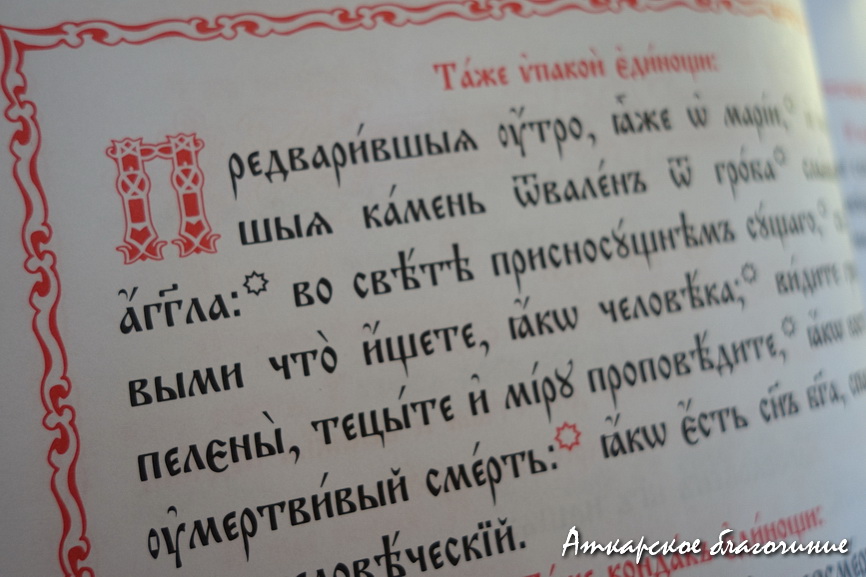 Та́же ѵ҆пакоѝ є҆ди́ножды:
Предвари́вшыѧ ᲂу҆́тро, ꙗ҆̀же ѡ҆ марі́и,
шыѧ ка́мень ѿвале́нъ ѿ гро́ба
а҆́гг҃ла: во свѣ́тѣ присносꙋ́щнѣмъ сꙋ́щаго,
выми что̀ и҆́щете, ꙗ҆́кѡ человѣ́ка; ви́дите
пелєны̀, тецы́те и҆ мі́рꙋ проповѣ́дите, ꙗ҆́кѡ
ᲂу҆мертви́вый сме́рть: ꙗ҆́кѡ є҆́сть сн҃ъ бг҃а,
ловѣ́ческїй.
Та́же конда́къ
Аткарское благочиние